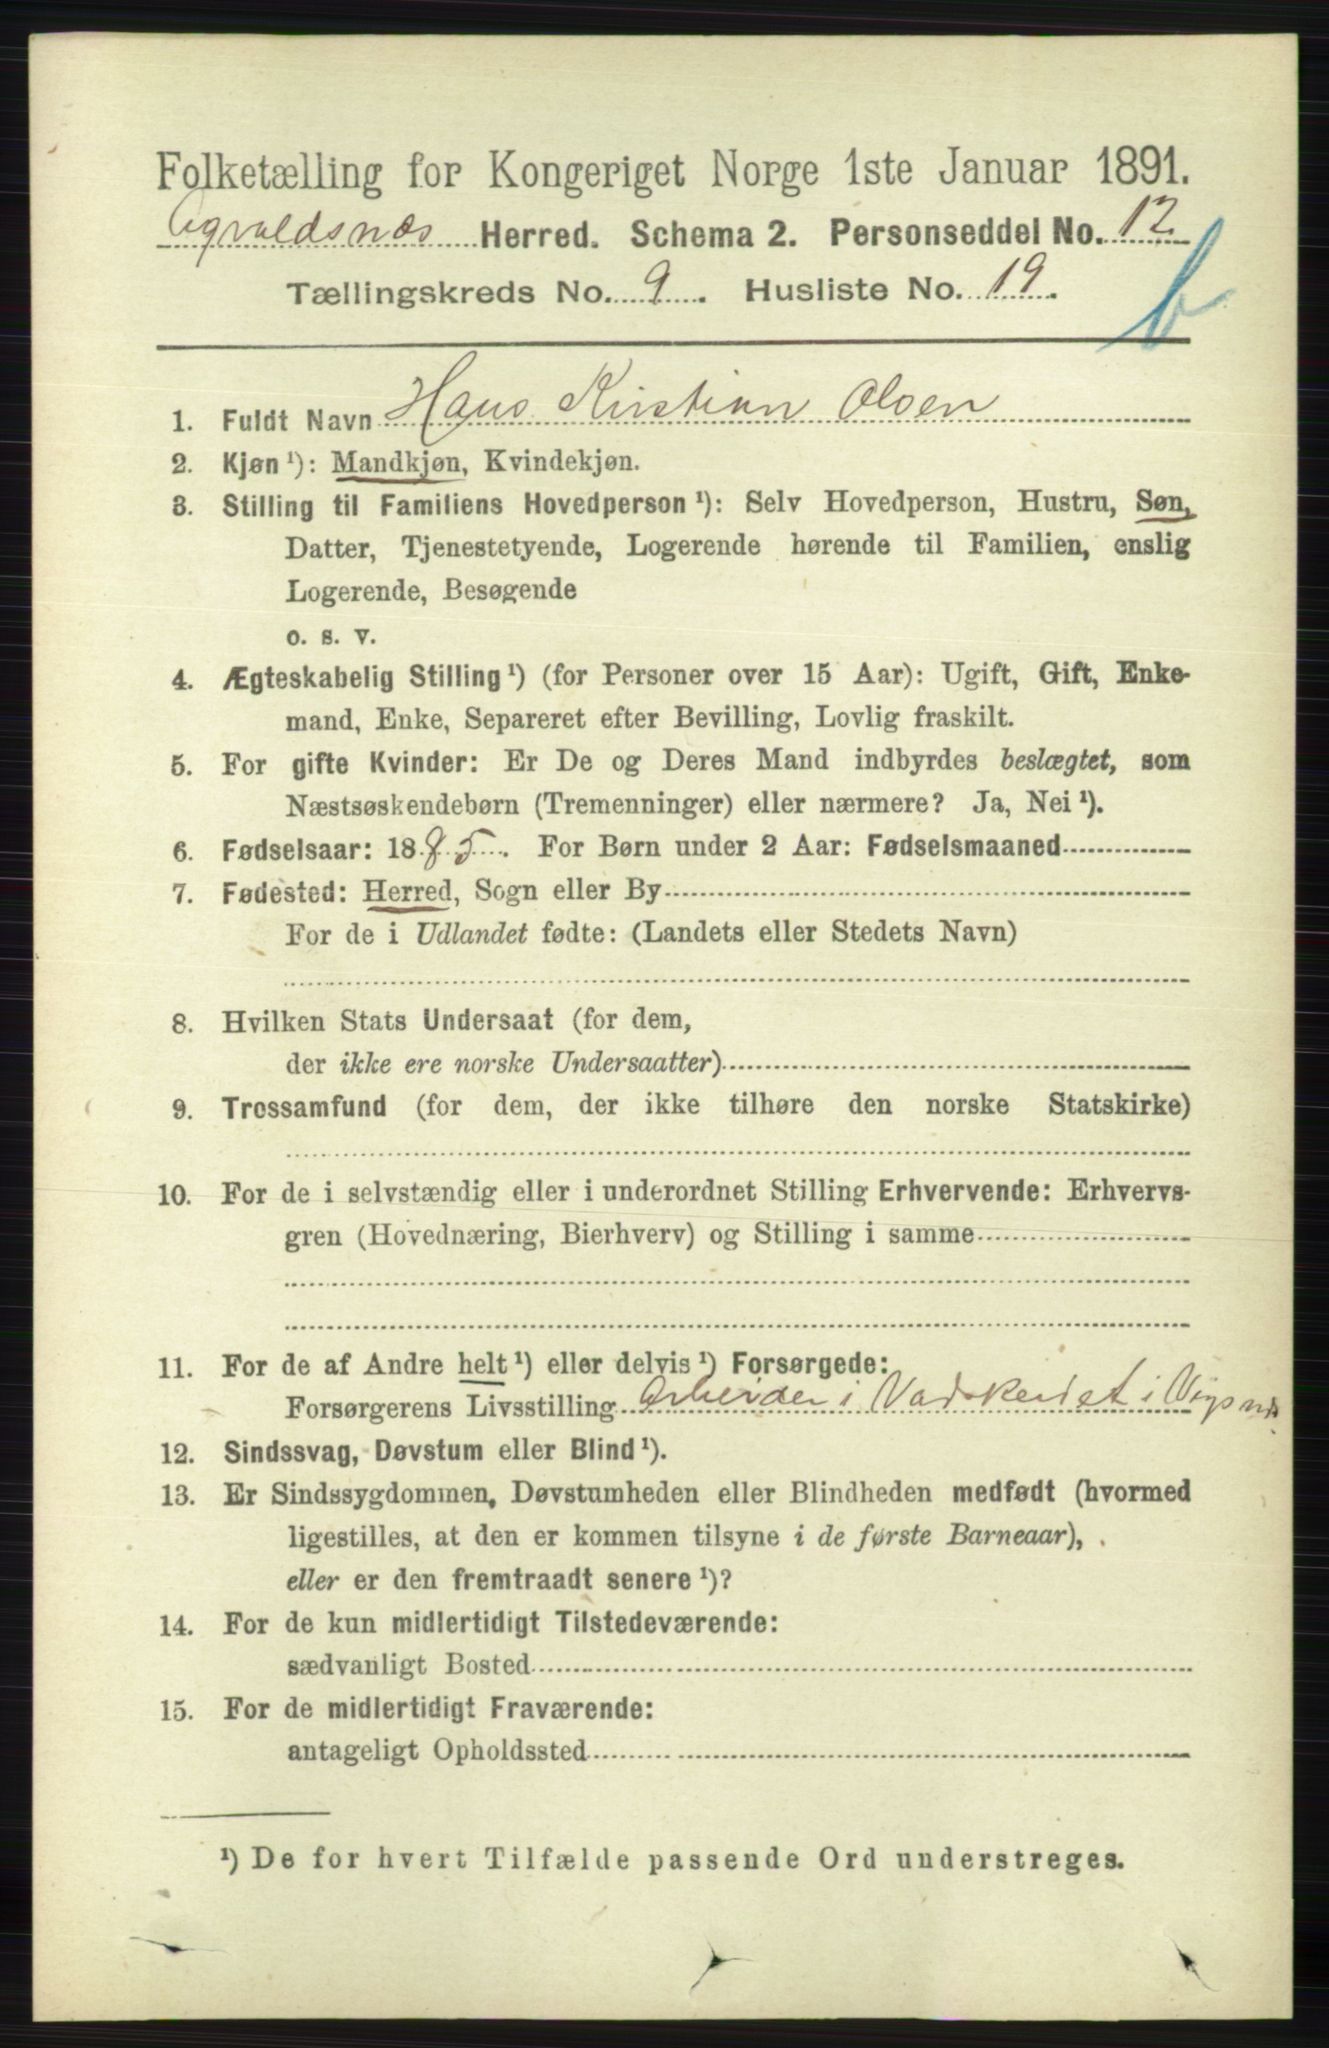 Folketælling for Kongeriget Norge 1ste Januar 1891.
Agvaldsnæs Herred. Schema 2. Personseddel No. 12
Tællingskreds No. 9. Husliste No. 19.
b
1. Fuldt Navn Hans Kristian Olsen
2. Kjøn ¹): Mandkjøn, Kvindekjøn.
3. Stilling til Familiens Hovedperson ¹): Selv Hovedperson, Hustru, Søn,
Datter, Tjenestetyende, Logerende hørende til Familien, enslig
Logerende, Besøgende
o. s. v.
4. Ægteskabelig Stilling ¹) (for Personer over 15 Aar): Ugift, Gift, Enke-
mand, Enke, Separeret efter Bevilling, Lovlig fraskilt.
5. For gifte Kvinder: Er De og Deres Mand indbyrdes beslægtet, som
Næstsøskendebørn (Tremenninger) eller nærmere? Ja, Nei ¹).
6. Fødselsaar: 1885. For Børn under 2 Aar: Fødselsmaaned
7. Fødested: Herred, Sogn eller By
For de i Udlandet fødte: (Landets eller Stedets Navn)
8. Hvilken Stats Undersaat (for dem,
der ikke ere norske Undersaatter)
9. Trossamfund (for dem, der ikke tilhøre den norske Statskirke)
10. For de i selvstændig eller i underordnet Stilling Erhvervende: Erhvervs-
gren (Hovednæring, Bierhverv) og Stilling i samme
11. For de af Andre helt ¹) eller delvis ¹) Forsørgede:
Forsørgerens Livsstilling Arbeider i Vadskeriet i Vigsnæs
12. Sindssvag, Døvstum eller Blind ¹).
13. Er Sindssygdommen, Døvstumheden eller Blindheden medfødt (hvormed
ligestilles, at den er kommen tilsyne i de første Barneaar),
eller er den fremtraadt senere ¹)?
14. For de kun midlertidigt Tilstedeværende:
sædvanligt Bosted
15. For de midlertidigt Fraværende:
antageligt Opholdssted
¹) De for hvert Tilfælde passende Ord understreges.